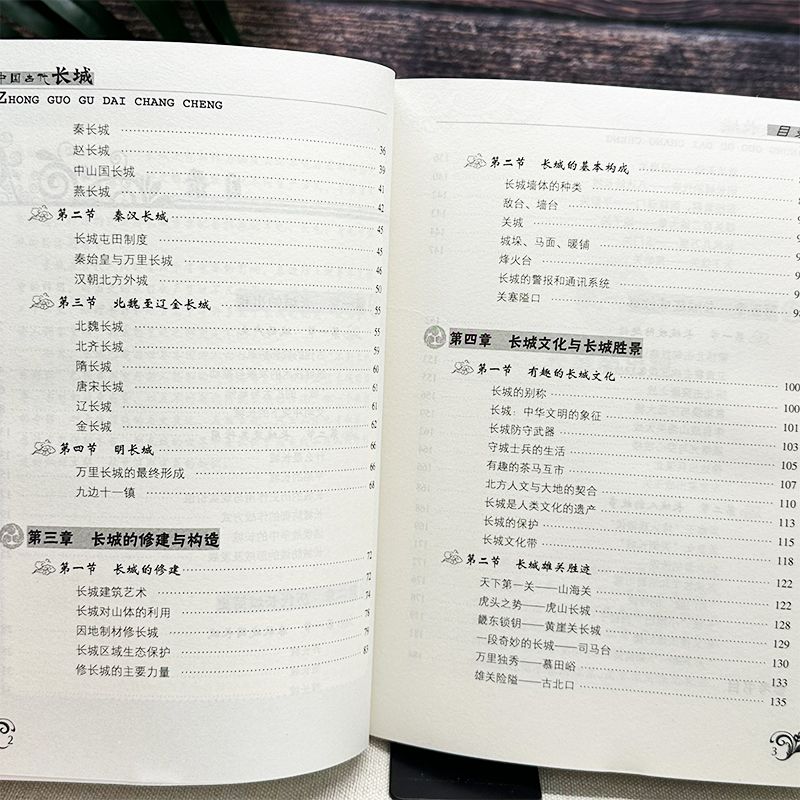 中国古代长城
ZHONG GUO GU DAI CHANG CHENG
秦长城 36
赵长城 39
中山国长城 41
燕长城 42
第二节 秦汉长城 45
长城屯田制度 45
秦始皇与万里长城 46
汉朝北方外城 50
第三节 北魏至辽金长城 55
北魏长城 55
北齐长城 59
隋长城 60
唐宋长城 61
辽长城 61
金长城 62
第四节 明长城 66
万里长城的最终形成 66
九边十一镇 68
第三章 长城的修建与构造
第一节 长城的修建 72
长城建筑艺术 72
长城对山体的利用 74
因地制材修长城 78
长城区域生态保护 79
修长城的主要力量 83
2
目
第二节 长城的基本构成
长城墙体的种类
敌台、墙台
关城
城垛、马面、暖铺
烽火台
长城的警报和通讯系统
关塞隘口
第四章 长城文化与长城胜景
第一节 有趣的长城文化 100
长城的别称 100
长城：中华文明的象征 101
长城防守武器 103
守城士兵的生活 105
有趣的茶马互市 107
北方人文与大地的契合 110
长城是人类文化的遗产 113
长城的保护 115
长城文化带 118
第二节 长城雄关胜迹 122
天下第一关——山海关 122
虎头之势——虎山长城 128
畿东锁钥——黄崖关长城 129
一段奇妙的长城——司马台 130
万里独秀——慕田峪 133
雄关险隘——古北口 135
3